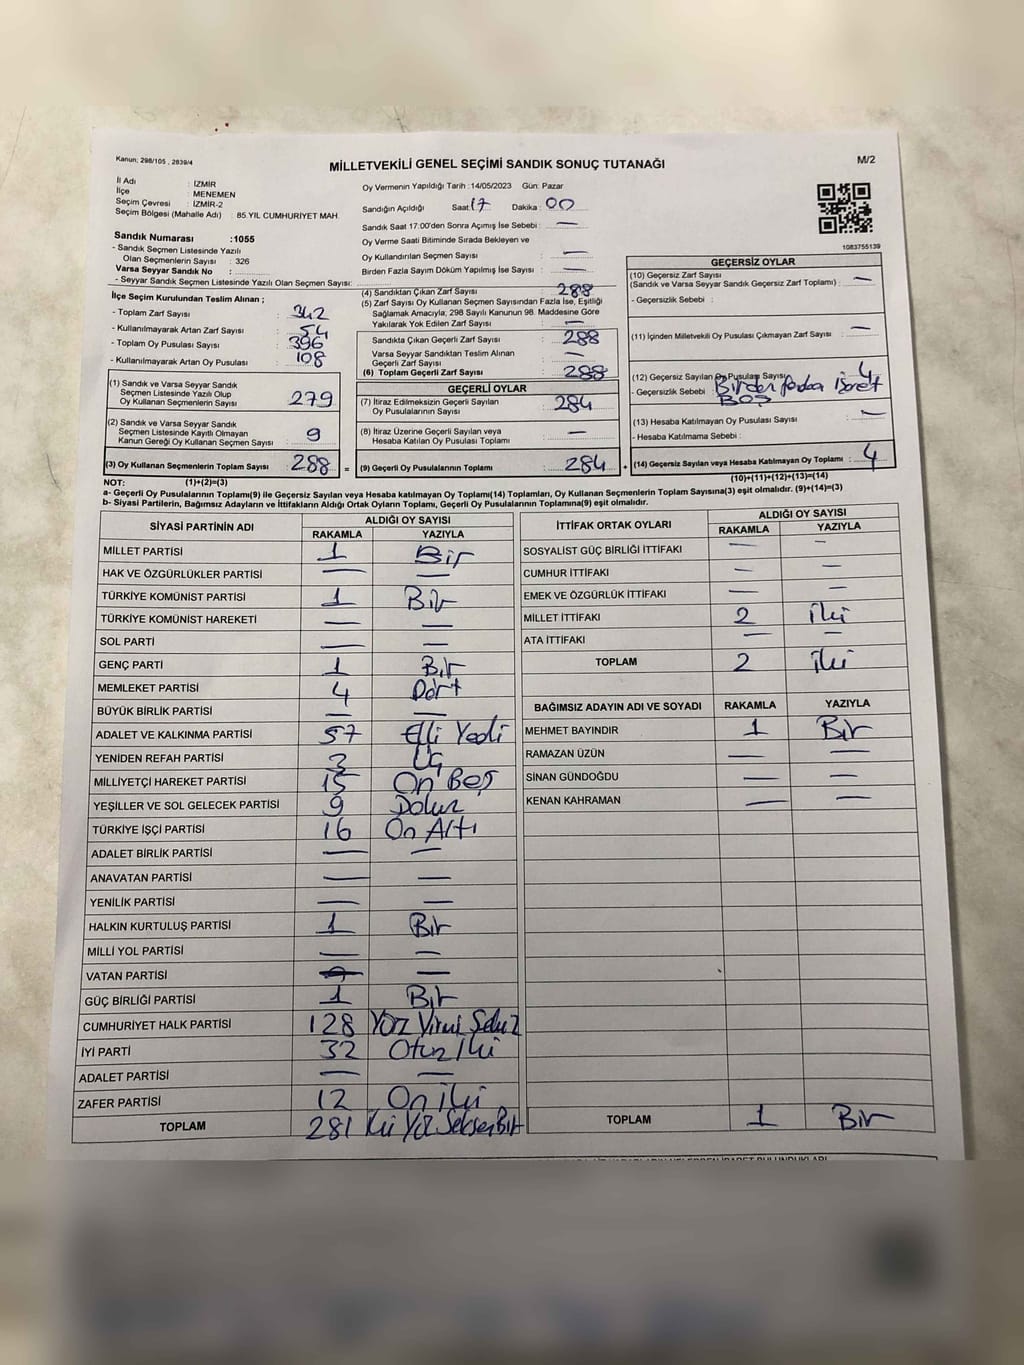 Kanun; 298/105 , 2839/4
MİLLETVEKİLİ GENEL SEÇİMİ SANDIK SONUÇ TUTANAĞI
M/2
İl Adı : İZMİR
İlçe : MENEMEN
Seçim Çevresi : İZMİR-2
Seçim Bölgesi (Mahalle Adı) : 85.YIL CUMHURİYET MAH.
Sandık Numarası :1055
- Sandık Seçmen Listesinde Yazılı
Olan Seçmenlerin Sayısı : 326
Varsa Seyyar Sandık No :
- Seyyar Sandık Seçmen Listesinde Yazılı Olan Seçmen Sayısı:
Oy Vermenin Yapıldığı Tarih :14/05/2023 Gün: Pazar
Sandığın Açıldığı Saat: 17 Dakika: 00
Sandık Saat 17:00'den Sonra Açımış İse Sebebi : —
Oy Verme Saati Bitiminde Sırada Bekleyen ve
Oy Kullandırılan Seçmen Sayısı : —
Birden Fazla Sayım Döküm Yapılmış İse Sayısı : —
1083755139
İlçe Seçim Kurulundan Teslim Alınan ;
- Toplam Zarf Sayısı : 342
- Kullanılmayarak Artan Zarf Sayısı : 54
- Toplam Oy Pusulası Sayısı : 396
- Kullanılmayarak Artan Oy Pusulası : 108
(1) Sandık ve Varsa Seyyar Sandık
Seçmen Listesinde Yazılı Olup
Oy Kullanan Seçmenlerin Sayısı : 279
(2) Sandık ve Varsa Seyyar Sandık
Seçmen Listesinde Kayıtlı Olmayan
Kanun Gereği Oy Kullanan Seçmen Sayısı : 9
(3) Oy Kullanan Seçmenlerin Toplam Sayısı : 288 =
(4) Sandıktan Çıkan Zarf Sayısı : 288
(5) Zarf Sayısı Oy Kullanan Seçmen Sayısından Fazla İse, Eşitliği
Sağlamak Amacıyla, 298 Sayılı Kanunun 98. Maddesine Göre
Yakılarak Yok Edilen Zarf Sayısı : —
Sandıkta Çıkan Geçerli Zarf Sayısı : 288
Varsa Seyyar Sandıktan Teslim Alınan
Geçerli Zarf Sayısı : —
(6) Toplam Geçerli Zarf Sayısı : 288
GEÇERLİ OYLAR
(7) İtiraz Edilmeksizin Geçerli Sayılan
Oy Pusulalarının Sayısı : 284
(8) İtiraz Üzerine Geçerli Sayılan veya
Hesaba Katılan Oy Pusulası Toplamı : —
(9) Geçerli Oy Pusulalarının Toplamı : 284 +
GEÇERSİZ OYLAR
(10) Geçersiz Zarf Sayısı
(Sandık ve Varsa Seyyar Sandık Geçersiz Zarf Toplamı) : —
- Geçersizlik Sebebi :
(11) İçinden Milletvekili Oy Pusulası Çıkmayan Zarf Sayısı : —
(12) Geçersiz Sayılan Oy Pusulası Sayısı : 4
- Geçersizlik Sebebi : Birden fazla işaret
BOŞ
(13) Hesaba Katılmayan Oy Pusulası Sayısı : —
- Hesaba Katılmama Sebebi :
(14) Geçersiz Sayılan veya Hesaba Katılmayan Oy Toplamı : 4
NOT: (1)+(2)=(3)
(10)+(11)+(12)+(13)=(14)
a- Geçerli Oy Pusulalarının Toplamı(9) ile Geçersiz Sayılan veya Hesaba katılmayan Oy Toplamı(14) Toplamları, Oy Kullanan Seçmenlerin Toplam Sayısına(3) eşit olmalıdır. (9)+(14)=(3)
b- Siyasi Partilerin, Bağımsız Adayların ve İttifakların Aldığı Ortak Oyların Toplamı, Geçerli Oy Pusulalarının Toplamına(9) eşit olmalıdır.
SİYASİ PARTİNİN ADI ALDIĞI OY SAYISI
RAKAMLA YAZIYLA
MİLLET PARTİSİ 1 Bir
HAK VE ÖZGÜRLÜKLER PARTİSİ — —
TÜRKİYE KOMÜNİST PARTİSİ 1 Bir
TÜRKİYE KOMÜNİST HAREKETİ — —
SOL PARTİ — —
GENÇ PARTİ 1 Bir
MEMLEKET PARTİSİ 4 Dört
BÜYÜK BİRLİK PARTİSİ — —
ADALET VE KALKINMA PARTİSİ 57 Elli Yedi
YENİDEN REFAH PARTİSİ 3 Üç
MİLLİYETÇİ HAREKET PARTİSİ 15 On Beş
YEŞİLLER VE SOL GELECEK PARTİSİ 9 Dokuz
TÜRKİYE İŞÇİ PARTİSİ 16 On Altı
ADALET BİRLİK PARTİSİ — —
ANAVATAN PARTİSİ — —
YENİLİK PARTİSİ — —
HALKIN KURTULUŞ PARTİSİ 1 Bir
MİLLİ YOL PARTİSİ — —
VATAN PARTİSİ — —
GÜÇ BİRLİĞİ PARTİSİ 1 Bir
CUMHURİYET HALK PARTİSİ 128 Yüz Yirmi Sekiz
İYİ PARTİ 32 Otuz İki
ADALET PARTİSİ — —
ZAFER PARTİSİ 12 On iki
TOPLAM 281 İki Yüz Seksen Bir
İTTİFAK ORTAK OYLARI ALDIĞI OY SAYISI
RAKAMLA YAZIYLA
SOSYALİST GÜÇ BİRLİĞİ İTTİFAKI — —
CUMHUR İTTİFAKI — —
EMEK VE ÖZGÜRLÜK İTTİFAKI — —
MİLLET İTTİFAKI 2 iki
ATA İTTİFAKI — —
TOPLAM 2 iki
BAĞIMSIZ ADAYIN ADI VE SOYADI RAKAMLA YAZIYLA
MEHMET BAYINDIR 1 Bir
RAMAZAN ÜZÜN — —
SİNAN GÜNDOĞDU — —
KENAN KAHRAMAN — —
TOPLAM 1 Bir